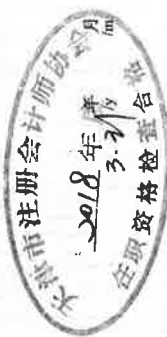 天津市注册会计师协会
2018年
3.21
任职资格检查合格